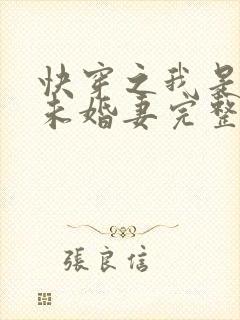 快穿之我是
未婚妻完整
張良信